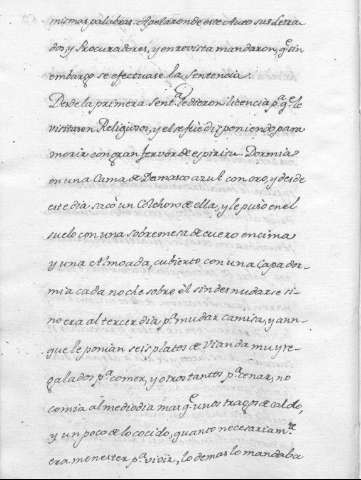 mismas palabras. Apelaron de este Auto sus Letra
dos y Procuradores, y en revista mandaron, q.e sin
embargo se efectuase la Sentencia.
Desde la primera Sent.a le dieron licencia p.a q.e le
visitasen Religiosos, y el se fue disponiendo para
morir con gran fervor de espiritu. Dormia
en una Cama de Damasco azul con oro, y desde
este dia sacò un Colchon de ella, y le puso en el
suelo con una sobremesa de cuero encima
y una Almoada, cubierto con una Capa dor-
mia cada noche sobre èl sin desnudarse si-
no era al tercer dia p.a mudar camisa, y aun-
que le ponian seis platos de vianda muy re-
galados p.a comer, y otros tantos p.a cenar, no
comia al mediodia mas q.e unos tragos de caldo,
y un poco de lo cocido, quanto necesariam.te
era menester p.a vivir, lo demas lo mandaba